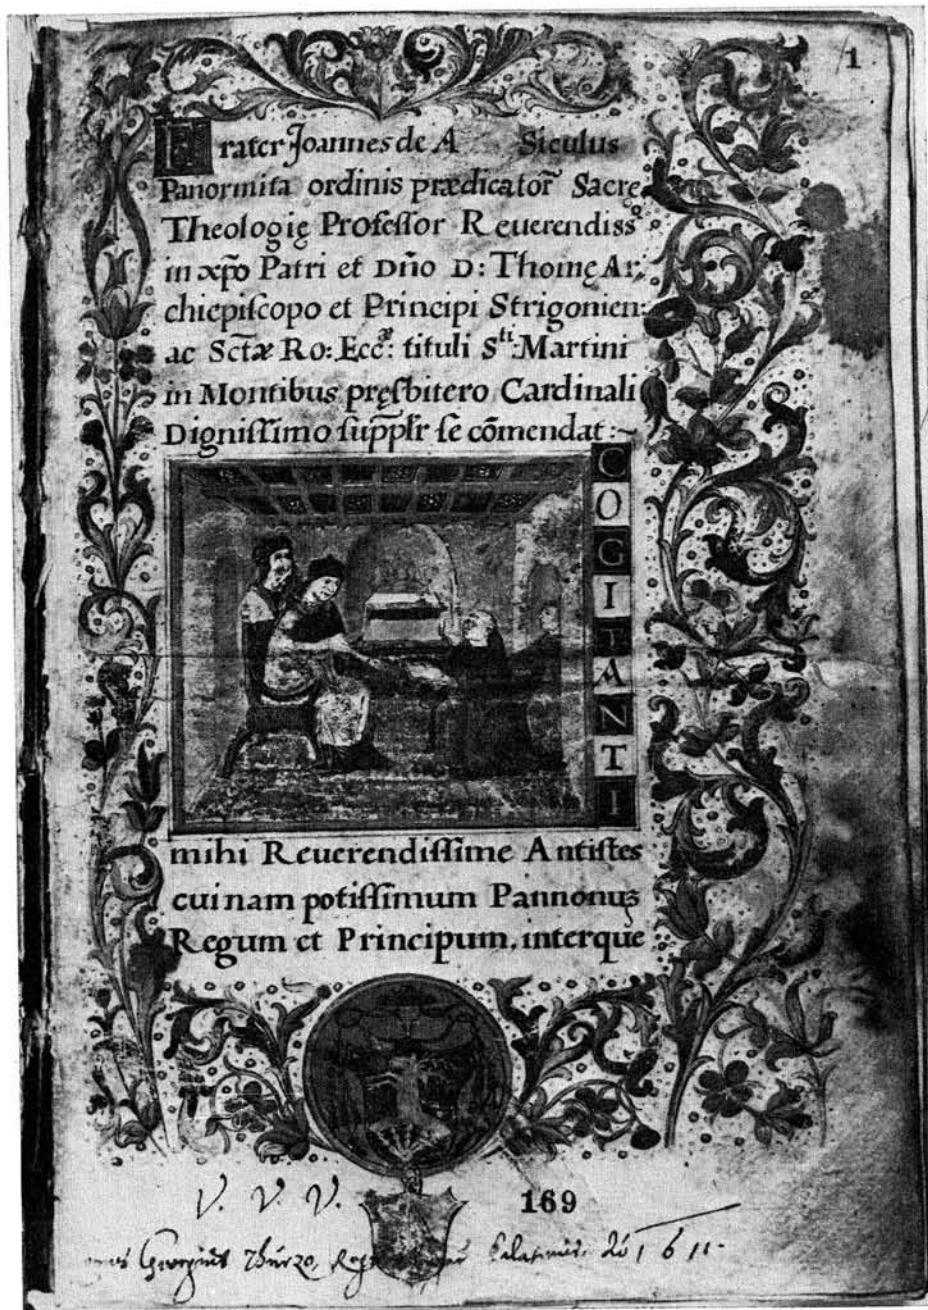 1
Frater Joannes de A Siculus
Panormita ordinis prædicator̃ Sacrę
Theologię Professor Reuerendissº
in xp̃o Patri et Dño D: Thomę Ar;
chiepiscopo et Principi Strigonien:
ac Sctæ Ro: Eccæ: tituli Sti: Martini
in Montibus pręsbitero Cardinali
Dignissimo supplr se cōmendat:~
COGITANTI
mihi Reuerendissime Antistes
cuinam potissimum Pannonuꝫ
Regum et Principum, interque
V. V. V.
169
Georgius Thurzo, Palatinus. 1611.